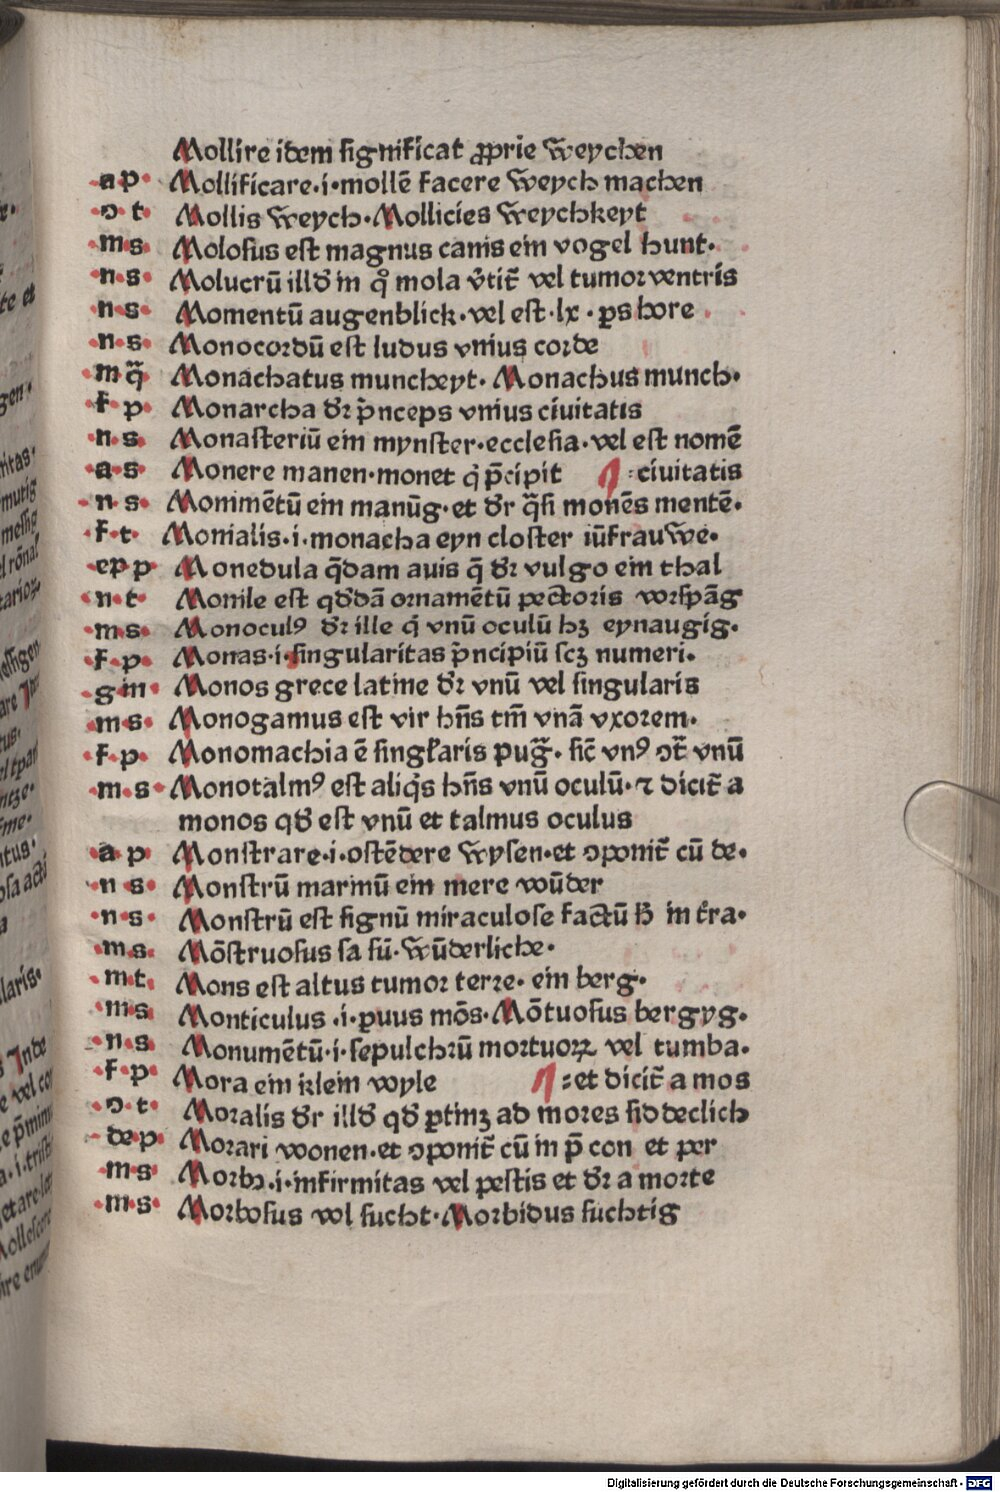 Mollire idem significat ꝓprie weychen
·a p· Mollificare·i·mollē facere weych machen
·ↄ t· Mollis weych·Mollicies weychkeyt
·m s· Molosus est magnus canis ein vogel hunt·
·n s· Molucrū illđ in q̊ mola v̄tit᷑ vel tumor ventris
·n s· Momentū augenblick·vel est·lx·ꝑs hore
·n s· Monocordū est ludus vnius corde
·m q̄· Monachatus muncheyt·Monachus munch·
·f p· Monarcha đr p̄nceps vnius ciuitatis
·n s· Monasteriū ein mynster·ecclesia·vel est nomē
·a s· Monere manen·monet q̇ p̄cipit ¶ :ciuitatis
·n s· Monimētū ein manūg·et đr q̄si monēs mentē·
·f·t· Monialis·i·monacha eyn closter iūfrauwe·
·ep p· Monedula q̄dam auis q̄ đr vulgo ein thal
·n·t· Monile est qđdā ornamētū pectoris vorspāg
·m s· Monoculꝰ đr ille q̇ vnū oculū hꝫ eynaugig·
·f·p· Monas·i·singularitas p̄ncipiū scꝫ numeri·
·g in· Monos grece latine đr vnū vel singularis
·m s· Monogamus est vir hn̄s tm̄ vnā vxorem·
·f·p· Monomachia ē singl̄aris puḡ·sic̄ vnꝰ ↄt᷑ vnū
·m·s· Monotalmꝰ est aliq̇s hn̄s vnū oculū·⁊ dicit᷑ a
monos qđ est vnū et talmus oculus
·a p· Monstrare·i·ostēdere wysen·et ↄponit᷑ cū de·
·n s· Monstrū marinū ein mere wūder
·n s· Monstrū est signū miraculose factū ħ in t᷑ra·
·m s· Mōstruosus sa sū·wūderliche·
·m t· Mons est altus tumor terre·ein berg·
·m s· Monticulus·i·ꝑuus mōs·Mōtuosus bergyg·
·n s· Monumētū·i·sepulchrū mortuoꝝ vel tumba·
·f·p· Mora ein klein wyle ¶ :et dicit᷑ a mos
·ↄ·t· Moralis đr illđ qđ ꝑtinꝫ ad mores siddeclich
·de p· Morari wonen·et ↄponit᷑ cū in p̄ con et per
·m s· Morbꝰ·i·infirmitas vel pestis et đr a morte
·m s· Morbosus vol sucht·Morbidus suchtig
Digitalisierung gefördert durch die Deutsche Forschungsgemeinschaft · DFG